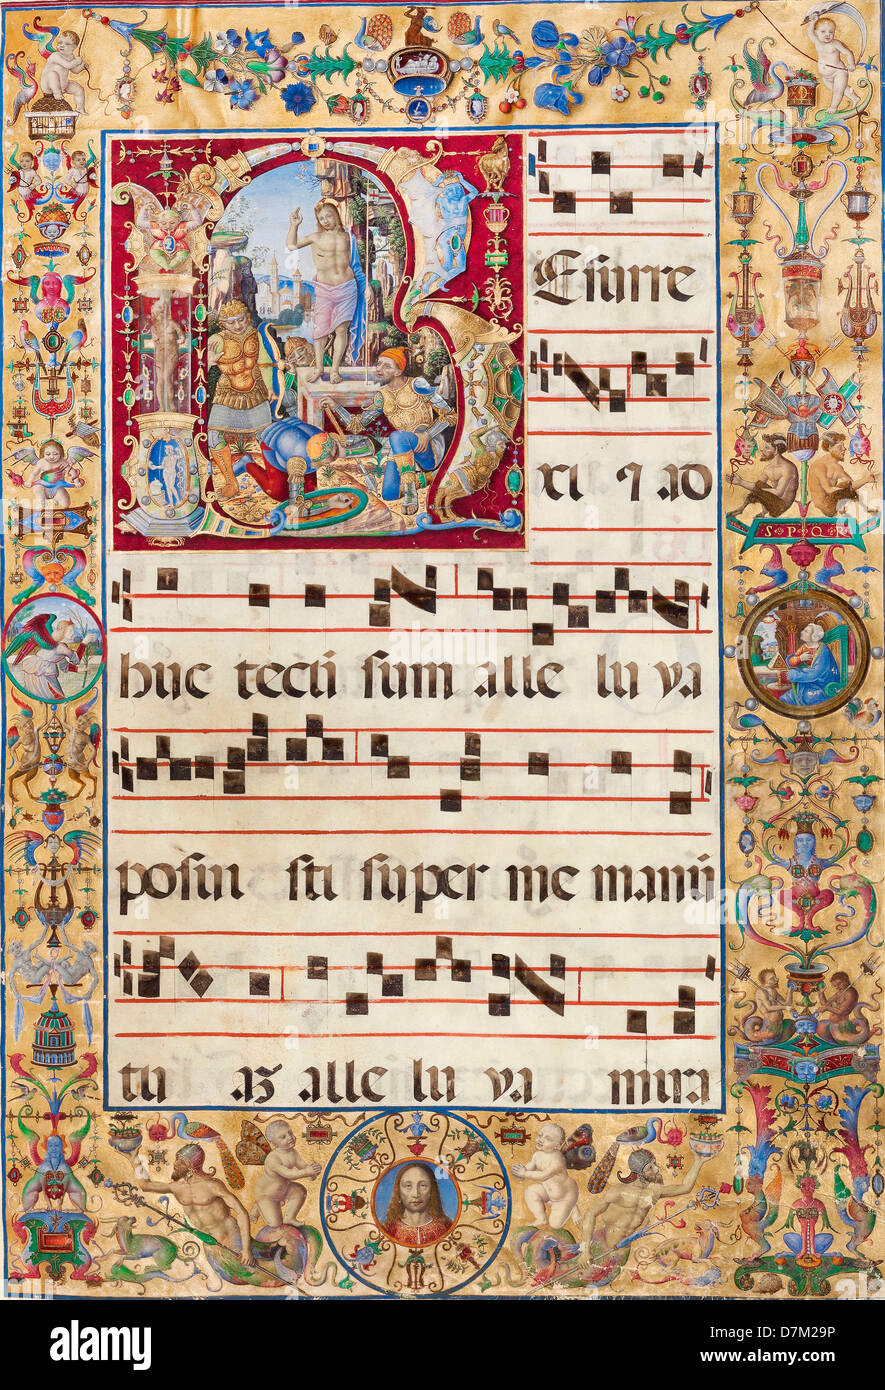 R Esurre
xi ⁊ ad
S P Q R
huc tecū sum alle lu ya
posui sti super me manū
tu aꝫ alle lu ya mira
alamy
Image ID: D7M29P
www.alamy.com